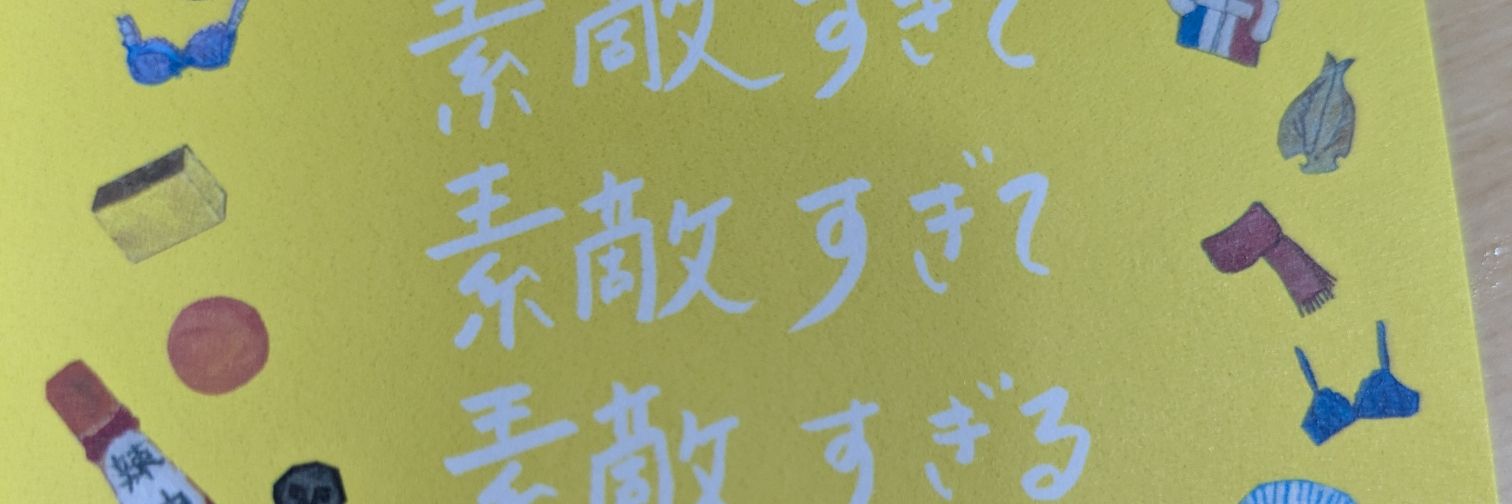 素敵すぎて
素敵すぎて
素敵すぎる
辣